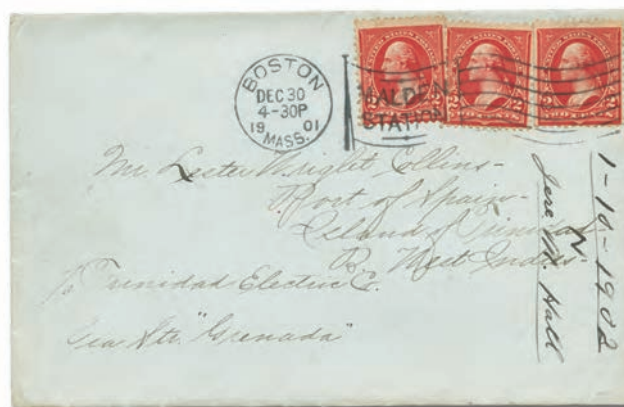 BOSTON
DEC 30
4-30P
19 01
MASS.
MALDEN
STATION
Mr. Lester Wright Collins-
Port of Spain-
Island of Trinidad
B. West Indies-
Trinidad Electric Co.
Via Str. "Grenada"
1-10-1902
Jere. N. Hall